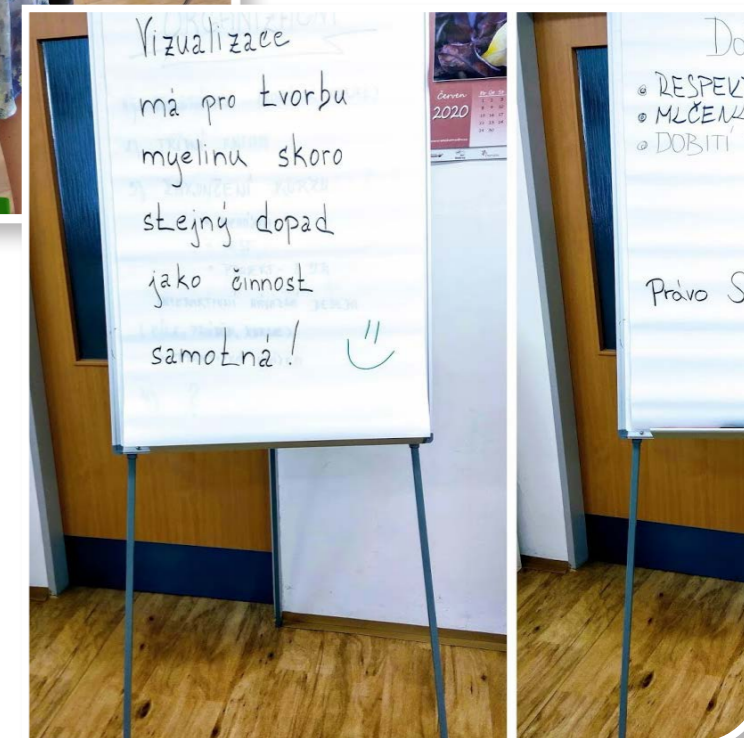 Vizualizace
má pro tvorbu
myelinu skoro
stejný dopad
jako činnost
samotná!
Červen
2020
RESPEKT
Právo